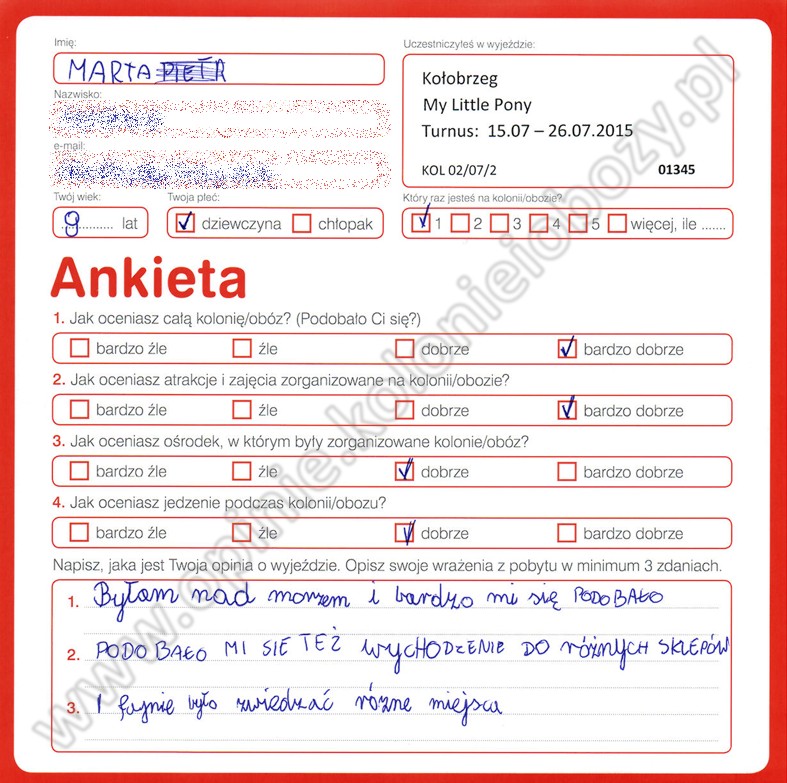 Imię:
Uczestniczyłeś w wyjeździe:
MARTA
Kołobrzeg
My Little Pony
Turnus: 15.07 – 26.07.2015
KOL 02/07/2 01345
Nazwisko:
e-mail:
Twój wiek:
Twoja płeć:
Który raz jesteś na kolonii/obozie?
9 lat
dziewczyna chłopak
1 2 3 4 5 więcej, ile .......
Ankieta
1. Jak oceniasz całą kolonię/obóz? (Podobało Ci się?)
bardzo źle źle dobrze bardzo dobrze
2. Jak oceniasz atrakcje i zajęcia zorganizowane na kolonii/obozie?
bardzo źle źle dobrze bardzo dobrze
3. Jak oceniasz ośrodek, w którym były zorganizowane kolonie/obóz?
bardzo źle źle dobrze bardzo dobrze
4. Jak oceniasz jedzenie podczas kolonii/obozu?
bardzo źle źle dobrze bardzo dobrze
Napisz, jaka jest Twoja opinia o wyjeździe. Opisz swoje wrażenia z pobytu w minimum 3 zdaniach.
1. Byłam nad morzem i bardzo mi się PODOBAŁO
2. PODOBAŁO MI SIE TEŻ WYCHODZENIE DO różnych SKLEPÓW
3. I fajnie było zwiedzać różne miejsca
www.opinie.kolonieiobozy.pl